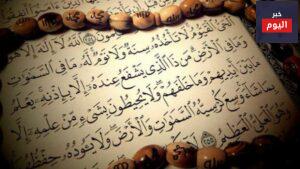 خبر
اليوم
الحي القيوم لا تأخذه سنة ولا نوم له ما في السموات
وما في الأرض من ذا الذي يشفع عنده إلا بإذنه يعلم
ما بين أيديهم وما خلفهم ولا يحيطون بشيء من علمه إلا
بما شاء وسع كرسيه السموات والأرض ولا يئوده حفظهما
وهو العلي العظيم